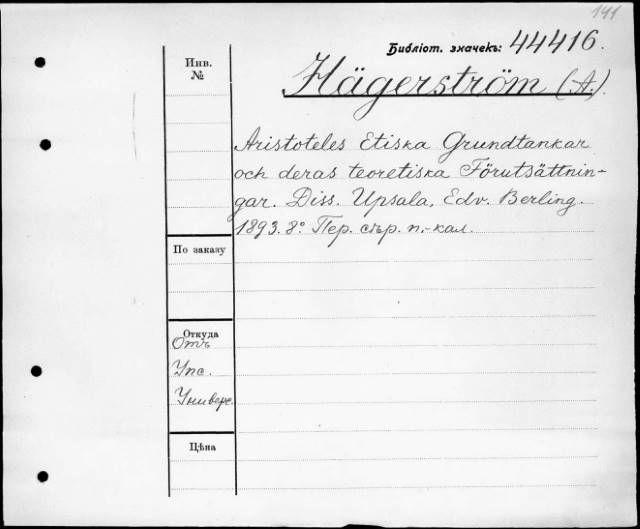 141
Библіот. значекъ: 44416.
Инв.
№
Hägerström (A.).
Aristoteles Etiska Grundtankar
och deras teoretiska Förutsättnin-
gar. Diss. Upsala, Edv. Berling.
1893. 8° Пер. сѣр. п.-кал.
По заказу
Откуда
Отъ
Упс.
Универс.
Цѣна